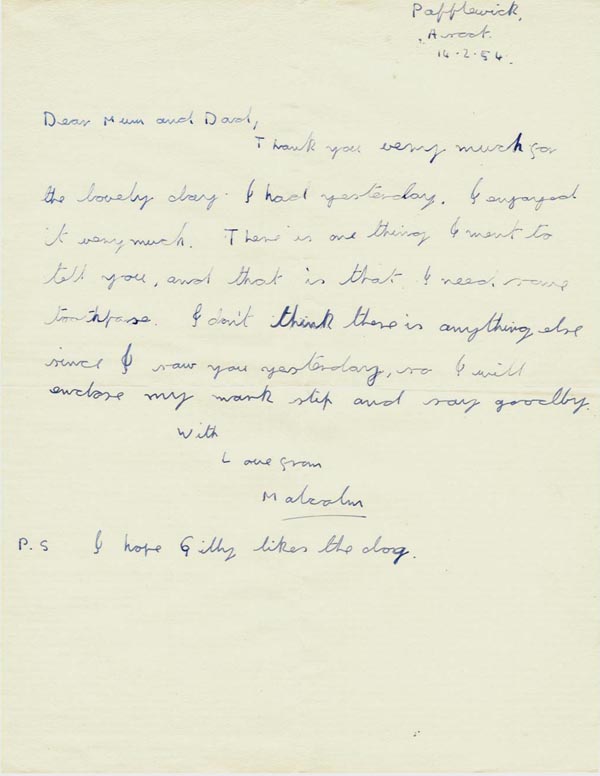 Papplewick,
Ascot.
14.2.54.
Dear Mum and Dad,
Thank you very much for
the lovely day I had yesterday. I enjoyed
it very much. There is one thing I ment to
tell you, and that is that I need some
toothpase. I don't think there is anything else
since I saw you yesterday, so I will
enclose my mark slip and say goodby.
With
Love from
Malcolm
P.S I hope Gilly likes the dog.